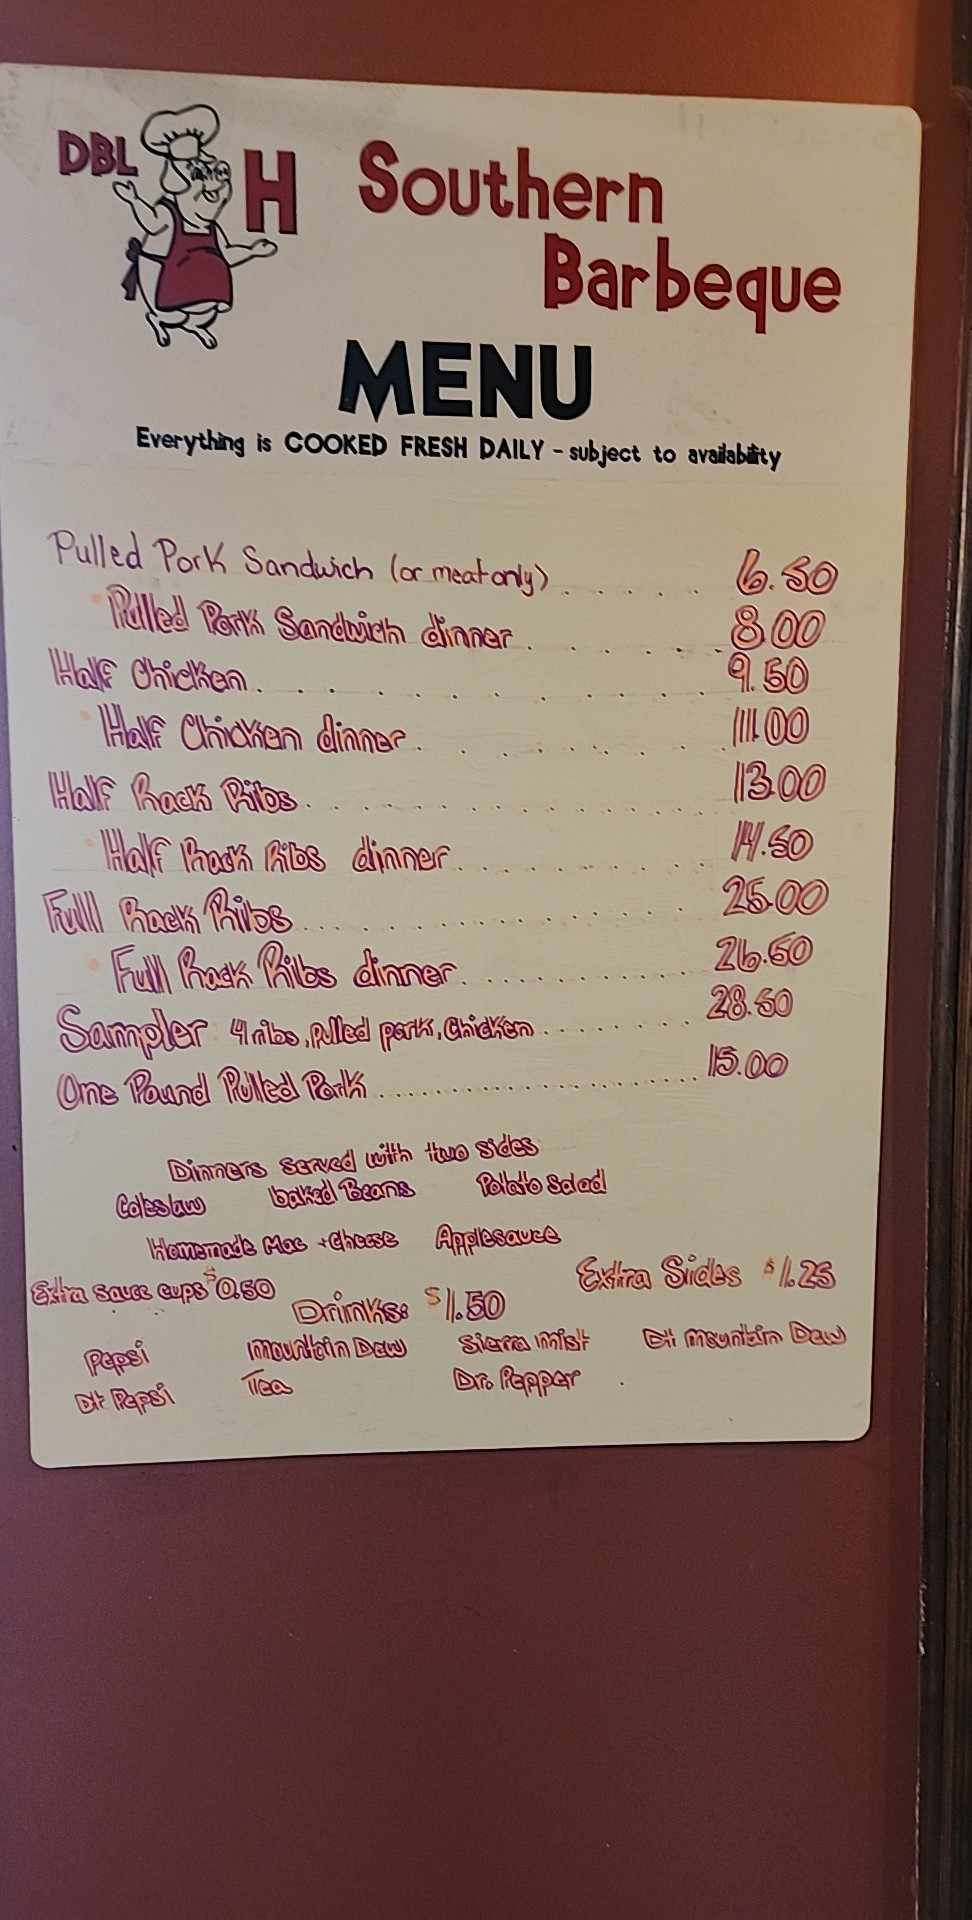 DBL H Southern
Barbeque
MENU
Everything is COOKED FRESH DAILY - subject to availability
Pulled Pork Sandwich (or meat only) . . . . . . 6.50
Pulled Pork Sandwich dinner . . . . . . 8.00
Half Chicken . . . . . . . . . . . 9.50
Half Chicken dinner . . . . . . . . 11.00
Half Rack Ribs . . . . . . . . . . . 13.00
Half Rack Ribs dinner . . . . . . . . 14.50
Full Rack Ribs . . . . . . . . . . . 25.00
Full Rack Ribs dinner . . . . . . . . 26.50
Sampler 4 ribs, pulled pork, Chicken . . . . . . . . 28.50
One Pound Pulled Pork . . . . . . . . . . . 15.00
Dinners served with two sides
Coleslaw baked Beans Potato Salad
Homemade Mac + Cheese Applesauce
Extra sauce cups $0.50 Extra Sides $1.25
Drinks: $1.50
Pepsi Mountain Dew Sierra mist Dt mountain Dew
Dt Pepsi Tea Dr. Pepper